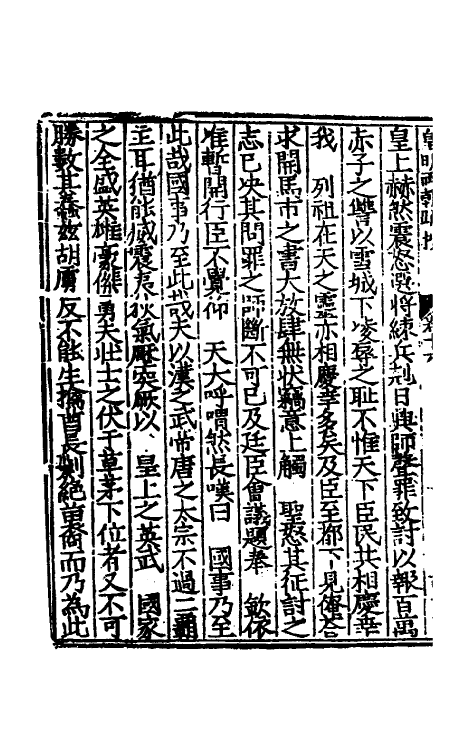 皇明兩朝疏抄
皇上赫然震怒選將練兵剋日興師聲罪致討以報百萬
赤子之讐以雪城下凌辱之恥不惟天下臣民共相慶幸
我　列祖在天之靈亦相慶幸多矣及臣至都下見俺荅
求開馬市之書大放肆無狀竊意上觸　聖怒其征討之
志已决其問罪之師斷不可已及廷臣會議題奉　欽依
准暫開行臣不覺仰　天大呼喟然長嘆曰　國事乃至
此哉國事乃至此哉夫以漢之武帝唐之太宗不過二霸
主耳猶能威震夷狄氣壓突厥以　皇上之英武　國家
之全盛英雄豪傑勇夫壯士之伏于草茅下位者又不可
勝數其蠢玆胡虜反不能生擒酋長剿絕苗裔而乃為此